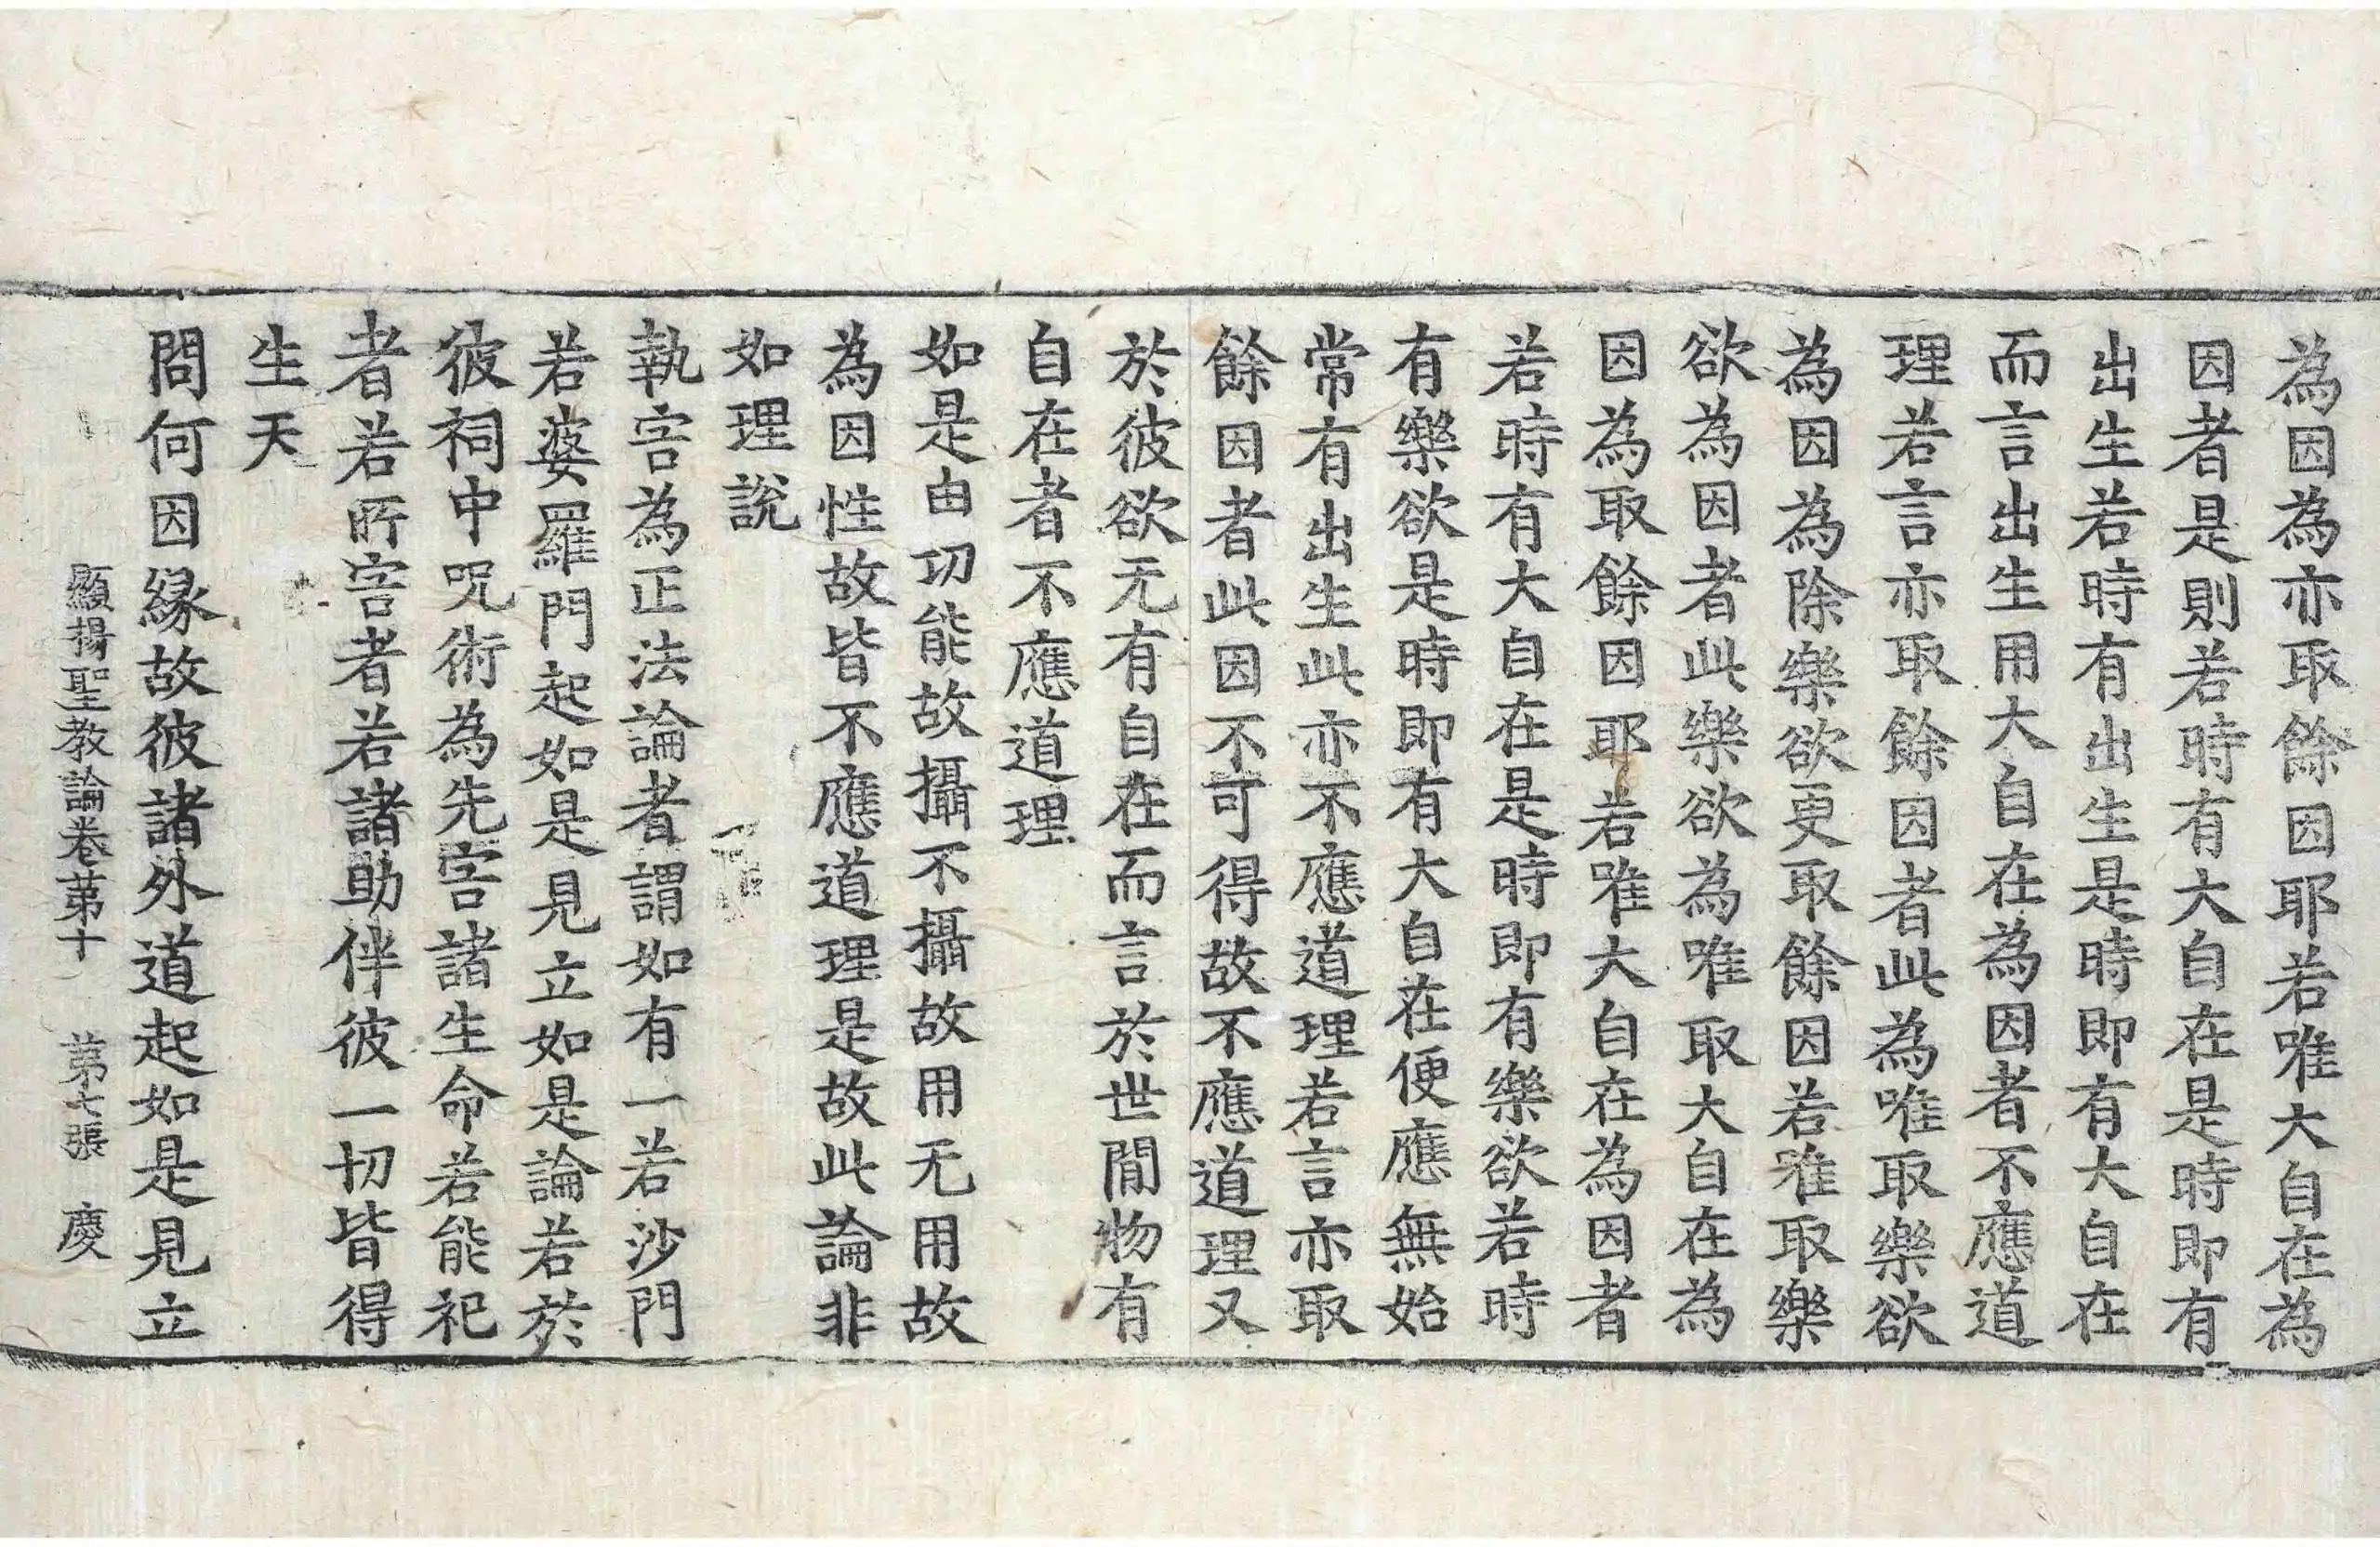 為因為亦取餘因耶若唯大自在為
因者是則若時有大自在是時即有
出生若時有出生是時即有大自在
而言出生用大自在為因者不應道
理若言亦取餘因者此為唯取樂欲
為因為除樂欲更取餘因若唯取樂
欲為因者此樂欲為唯取大自在為
因為取餘因耶若唯大自在為因者
若時有大自在是時即有樂欲若時
有樂欲是時即有大自在便應無始
常有出生此亦不應道理若言亦取
餘因者此因不可得故不應道理又
於彼欲无有自在而言於世間物有
自在者不應道理
如是由功能故攝不攝故用无用故
為因性故皆不應道理是故此論非
如理說
執害為正法論者謂如有一若沙門
若婆羅門起如是見立如是論若於
彼祠中呪術為先害諸生命若能祀
者若所害者若諸助伴彼一切皆得
生天
問何因緣故彼諸外道起如是見立
顯揚聖教論卷苐十 苐七張 慶